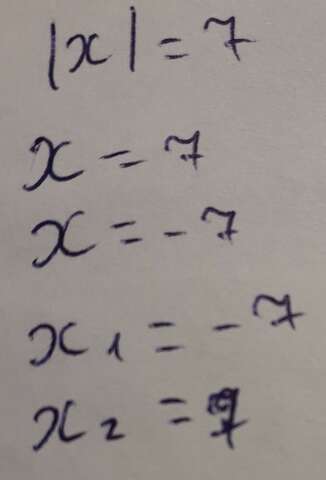 |x| = 7
x = 7
x = -7
x₁ = -7
x₂ = 7